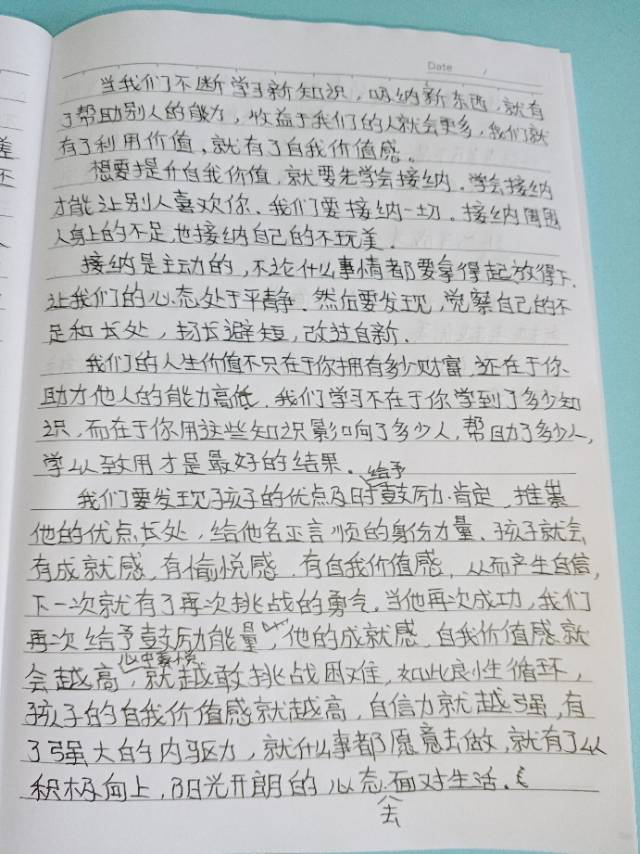 Date /
当我们不断学习新知识,吸纳新东西,就有
了帮助别人的能力,收益于我们的人就会更多,我们就
有了利用价值,就有了自我价值感。
想要提升自我价值,就要先学会接纳。学会接纳
才能让别人喜欢你、我们要接纳一切。接纳周围
人身上的不足,也接纳自己的不玩美.
接纳是主动的,不论什么事情都要拿得起放得下.
让我们的心态处于平静.然后要发现,觉察自己的不
足和长处,扬长避短,改过自新.
我们的人生价值不只在于你拥有多少财富,还在于你
助力他人的能力高低.我们学习不在于你学到了多少知
识,而在于你用这些知识影响了多少人,帮助了多少人,
学以致用才是最好的结果.
给予
我们要发现孩子的优点及时鼓励.肯定,推崇
他的优点,长处,给他名正言顺的身份力量.孩子就会
有成就感,有愉悦感.有自我价值感,从而产生自信,
下一次就有了再次挑战的勇气,当他再次成功,我们
再次给予鼓励能量,他的成就感,自我价值感就
会越高,就越敢挑战困难,如此良性循环,
孩子的自我价值感就越高,自信力就越强,有
了强大的内驱力,就什么事都愿意去做,就有了以
积极向上,阳光开朗的心态面对生活.
去